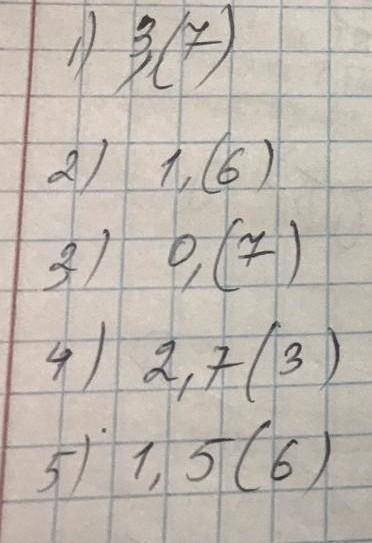 1) 3,(7)
2) 1,(6)
3) 0,(7)
4) 2,7(3)
5) 1,5(6)